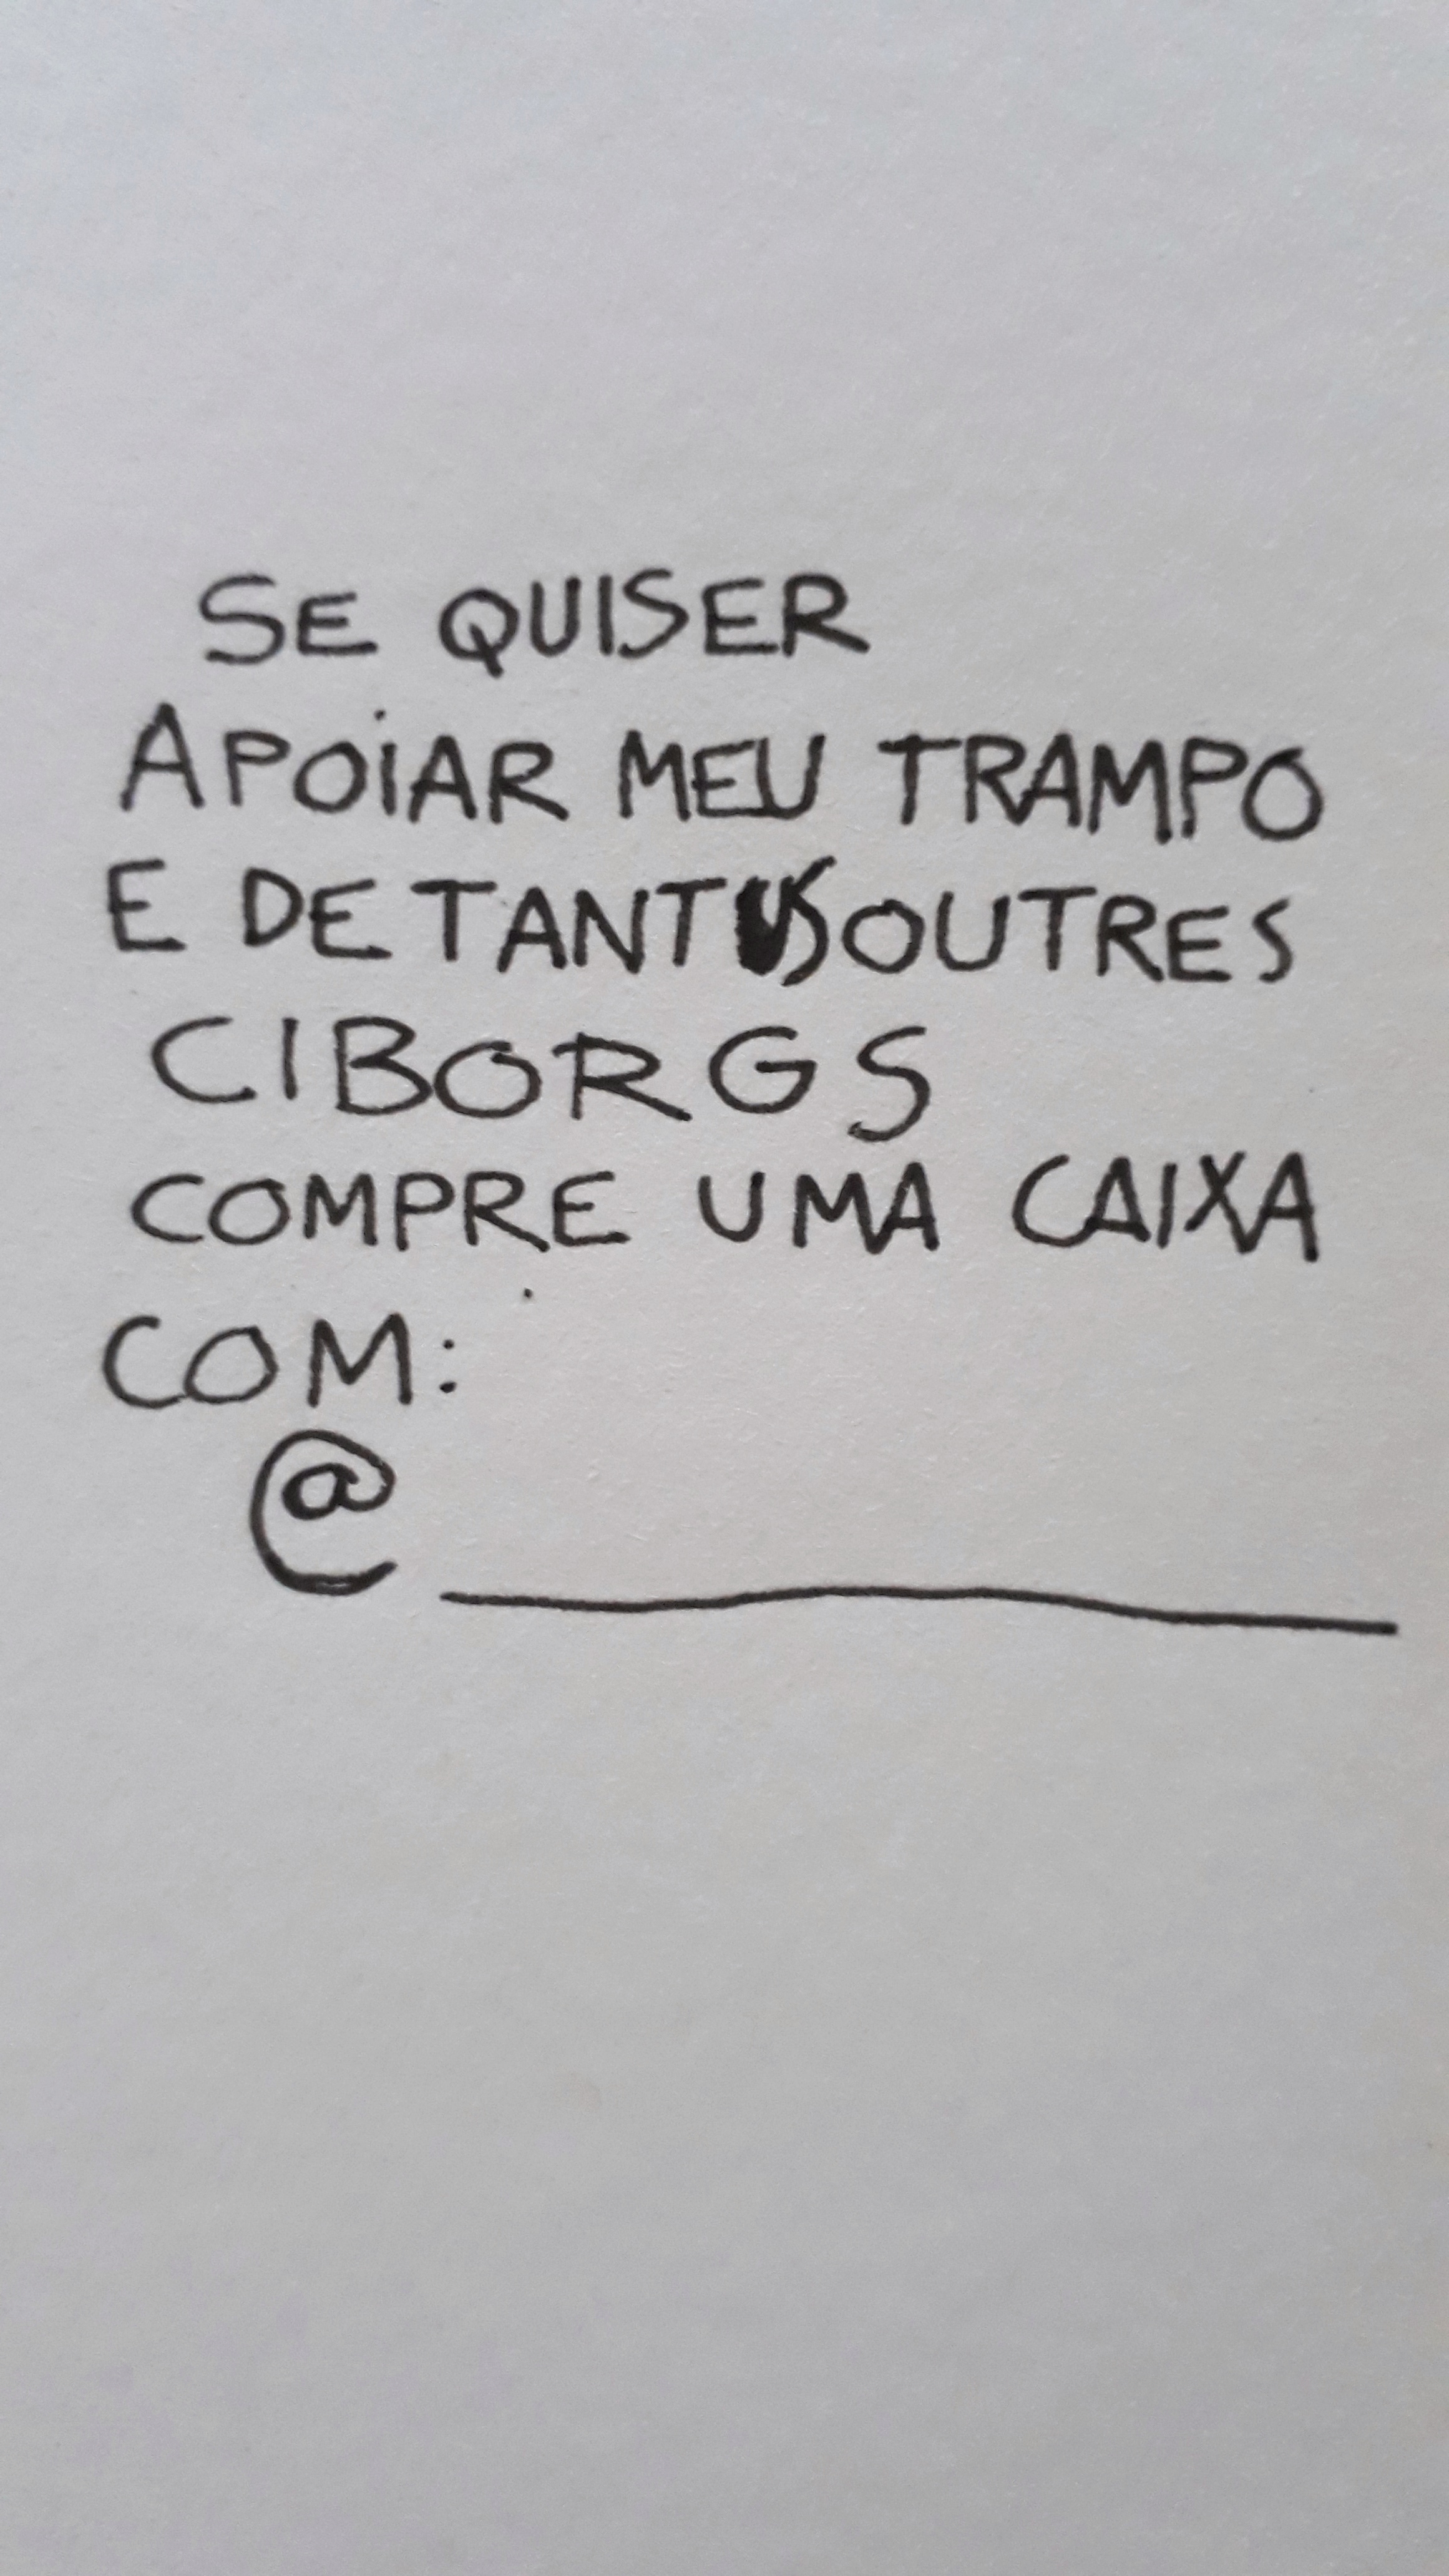 SE QUISER
APOIAR MEU TRAMPO
E DE OUTRES
CIBORGS
COMPRE UMA CAIXA
COM:
@